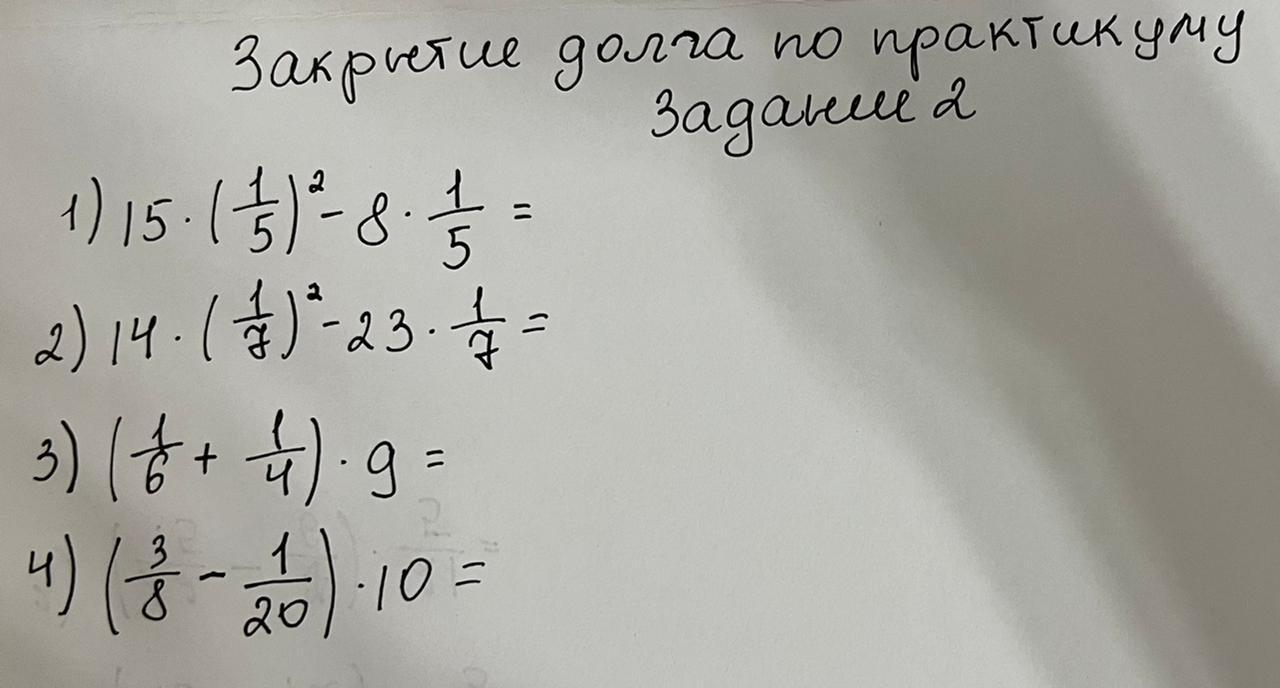 Закрытие долга по практикуму
Задание 2
1) 15 · (1/5)² - 8 · 1/5 =
2) 14 · (1/7)² - 23 · 1/7 =
3) (1/6 + 1/4) · 9 =
4) (3/8 - 1/20) · 10 =